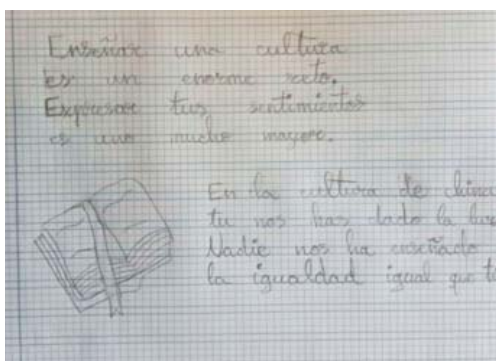 Enseñar una cultura
es un enorme reto.
Expresar tus sentimientos
es uno mucho mayor.
En la cultura de china
tu nos has dado la luz
Nadie nos ha enseñado
la igualdad igual que